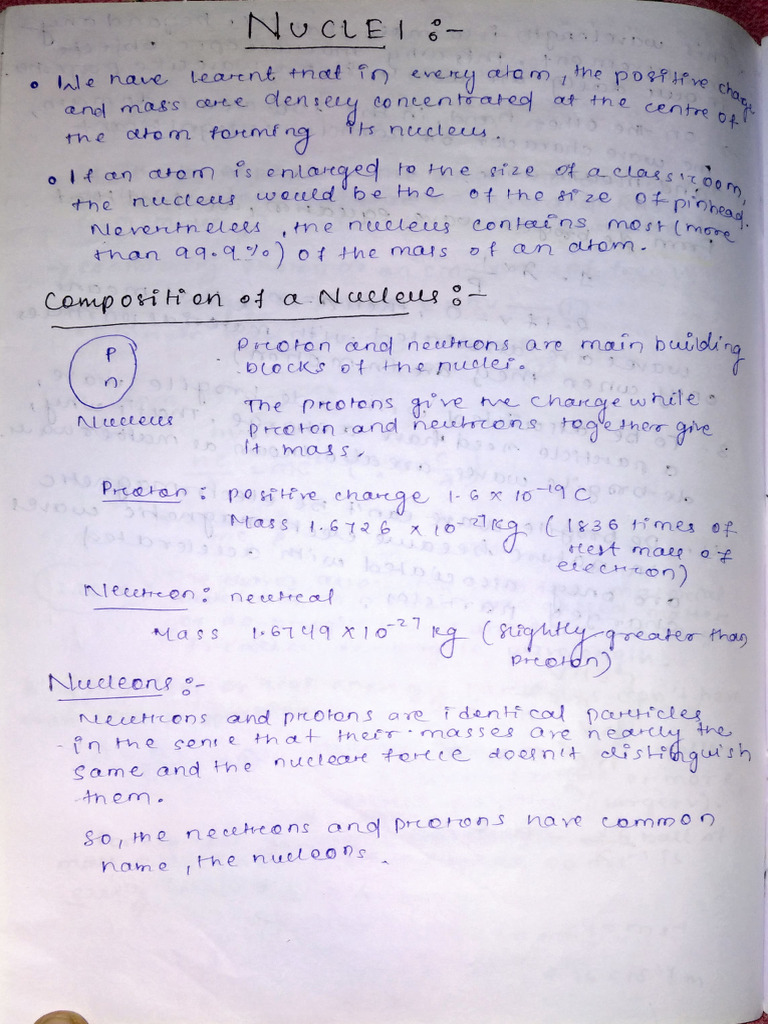 NUCLEI :-
• We have learnt that in every atom, the positive charge
and mass are densely concentrated at the centre of
the atom forming its nucleus.
• If an atom is enlarged to the size of a classroom,
the nucleus would be the of the size of pinhead.
Nevertheless, the nucleus contains most (more
than 99.9%) of the mass of an atom.
Composition of a Nucleus :-
P
n
Nucleus
Proton and neutrons are main building
blocks of the nuclei.
The protons give +ve charge while
proton and neutrons together give
it mass.
Proton : positive charge 1.6 × 10⁻¹⁹ C
Mass 1.6726 × 10⁻²⁷ kg (1836 times of
rest mass of
electron)
Neutron : neutral
Mass 1.6749 × 10⁻²⁷ kg (slightly greater than
proton)
Nucleons :-
Neutrons and protons are identical particles
in the sense that their masses are nearly the
same and the nuclear force doesn't distinguish
them.
So, the neutrons and protons have common
name, the nucleons.